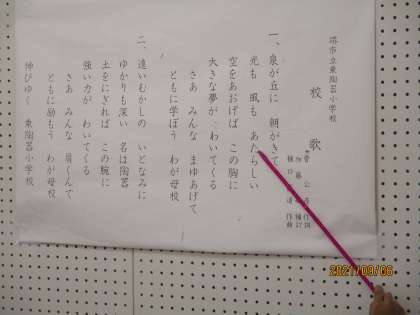 堺市立東陶器小学校
校歌
作詞
補訂
作曲
一、泉が丘に 朝がきて
光も 風も あたらしい
空をあおげば この胸に
大きな夢が わいてくる
さあ みんな まゆあげて
ともに学ぼう わが母校
二、遠いむかしの いとなみに
ゆかりも深い 名は陶器
土をにぎれば この腕に
強い力が わいてくる
さあ みんな 肩くんで
ともに励もう わが母校
伸びゆく 東陶器小学校
2021/09/06